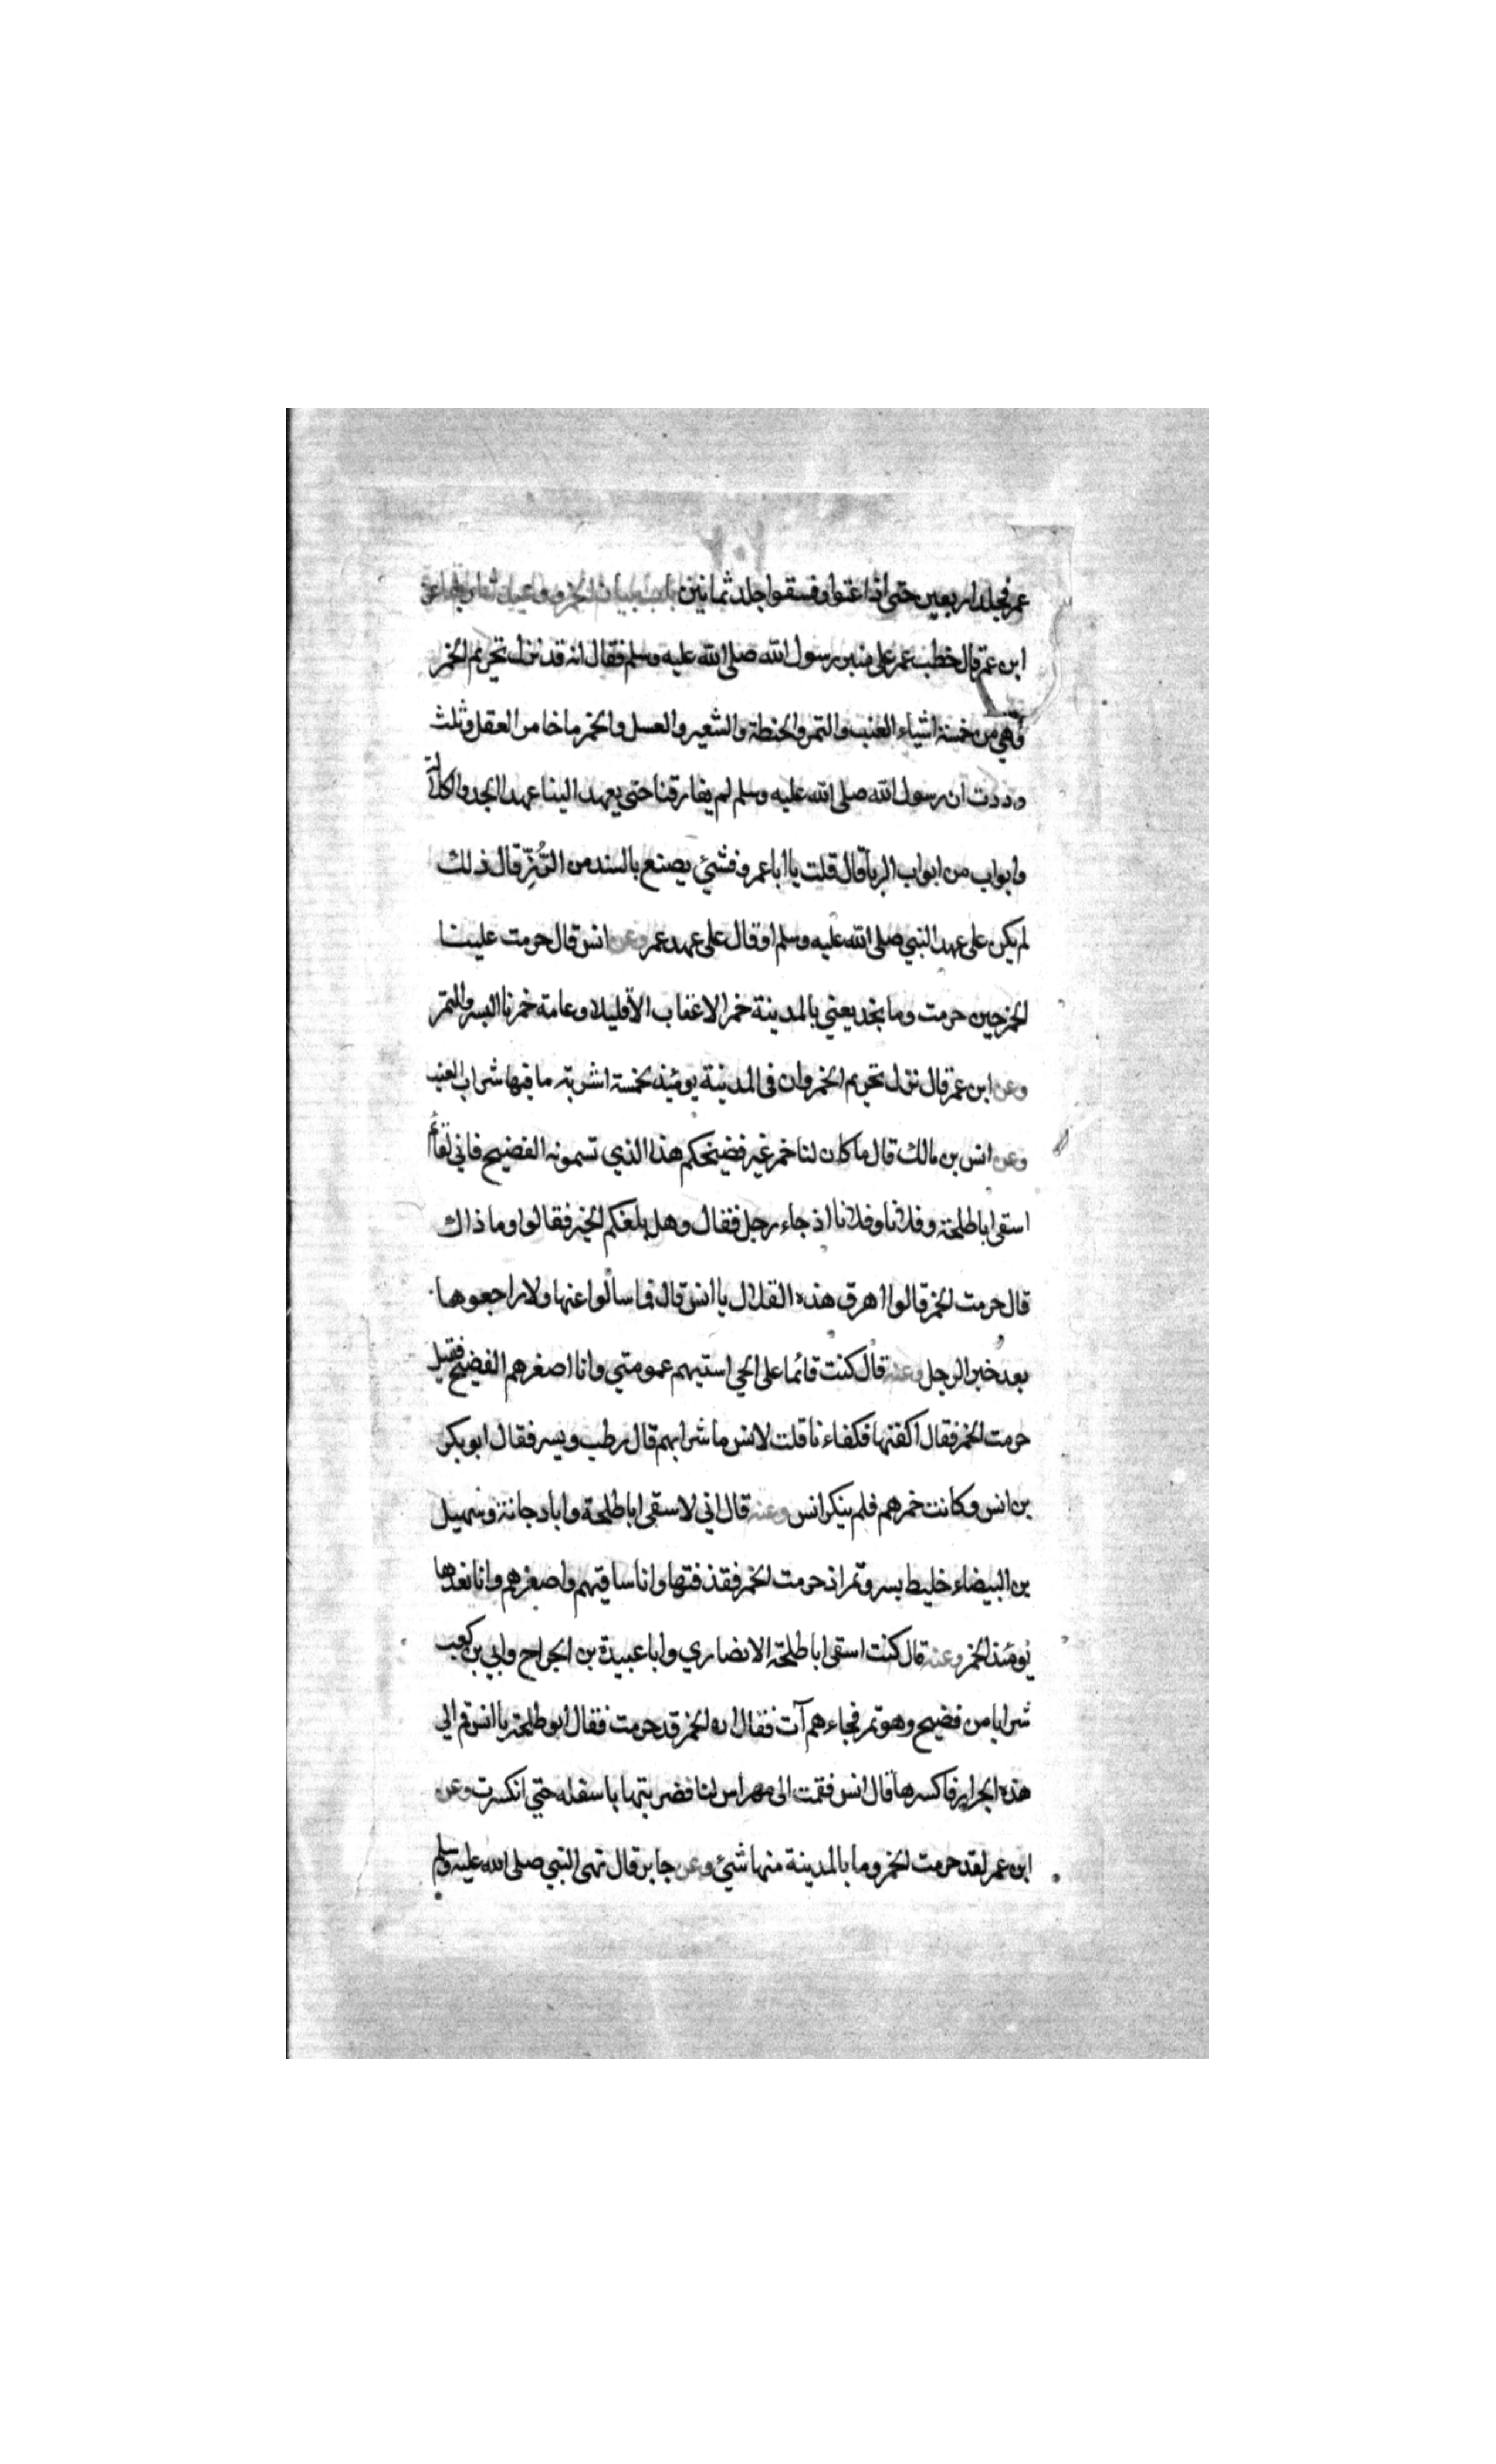 ٢٠٢
عمر فجلد اربعين حتى اذا عتوا وفسقوا جلد ثمانين باب بيان الخمر ووعيد شاربها عن
ابن عمر قال خطب عمر على منبر رسول الله صلى الله عليه وسلم فقال انه قد نزل تحريم الخمر
وهي من خمسة اشياء العنب والتمر والحنطة والشعير والعسل والخمر ما خامر العقل وثلث
وددت ان رسول الله صلى الله عليه وسلم لم يفارقنا حتى يعهد الينا عهدا الجد والكلالة
وابواب من ابواب الربا قال قلت يا ابا عمرو فشئ يصنع بالسند من الرُّزِّ قال ذلك
لم يكن على عهد النبي صلى الله عليه وسلم او قال على عهد عمر وعن انس قال حرمت علينا
الخمر حين حرمت وما نجد يعني بالمدينة خمر الاعناب الا قليلا وعامة خمرنا البسر والتمر
وعن ابن عمر قال نزل تحريم الخمر وان في المدينة يومئذ لخمسة اشربة ما فيها شراب العنب
وعن انس بن مالك قال ما كان لنا خمر غير فضيخكم هذا الذي تسمونه الفضيخ فاني لقائم
اسقي ابا طلحة وفلانا وفلانا اذ جاء رجل فقال وهل بلغكم الخبر فقالوا وما ذاك
قال حرمت الخمر قالوا اهرق هذه القلال يا انس قال فما سالوا عنها ولا راجعوها
بعد خبر الرجل وعنه قال كنت قائما على الحي اسقيهم عمومتي وانا اصغرهم الفضيخ فقيل
حرمت الخمر فقال اكفئها فكفاءنا قلت لانس ما شرابهم قال رطب وبسر فقال ابو بكر
بن انس وكانت خمرهم فلم ينكر انس وعنه قال اني لاسقي ابا طلحة وابا دجانة وسهيل
بن البيضاء خليط بسر وتمر اذ حرمت الخمر فقذفتها وانا ساقيهم واصغرهم وانا نعدها
يومئذ الخمر وعنه قال كنت اسقي ابا طلحة الانصاري وابا عبيدة بن الجراح وابي بن كعب
شرابا من فضيخ وهو تمر فجاءهم آت فقال ان الخمر قد حرمت فقال ابو طلحة يا انس قم الى
هذه الجرار فاكسرها قال انس فقمت الى مهراس لنا فضربتها باسفله حتى انكسرت وعن
ابن عمر لقد حرمت الخمر وما بالمدينة منها شئ وعن جابر قال نهى النبي صلى الله عليه وسلم